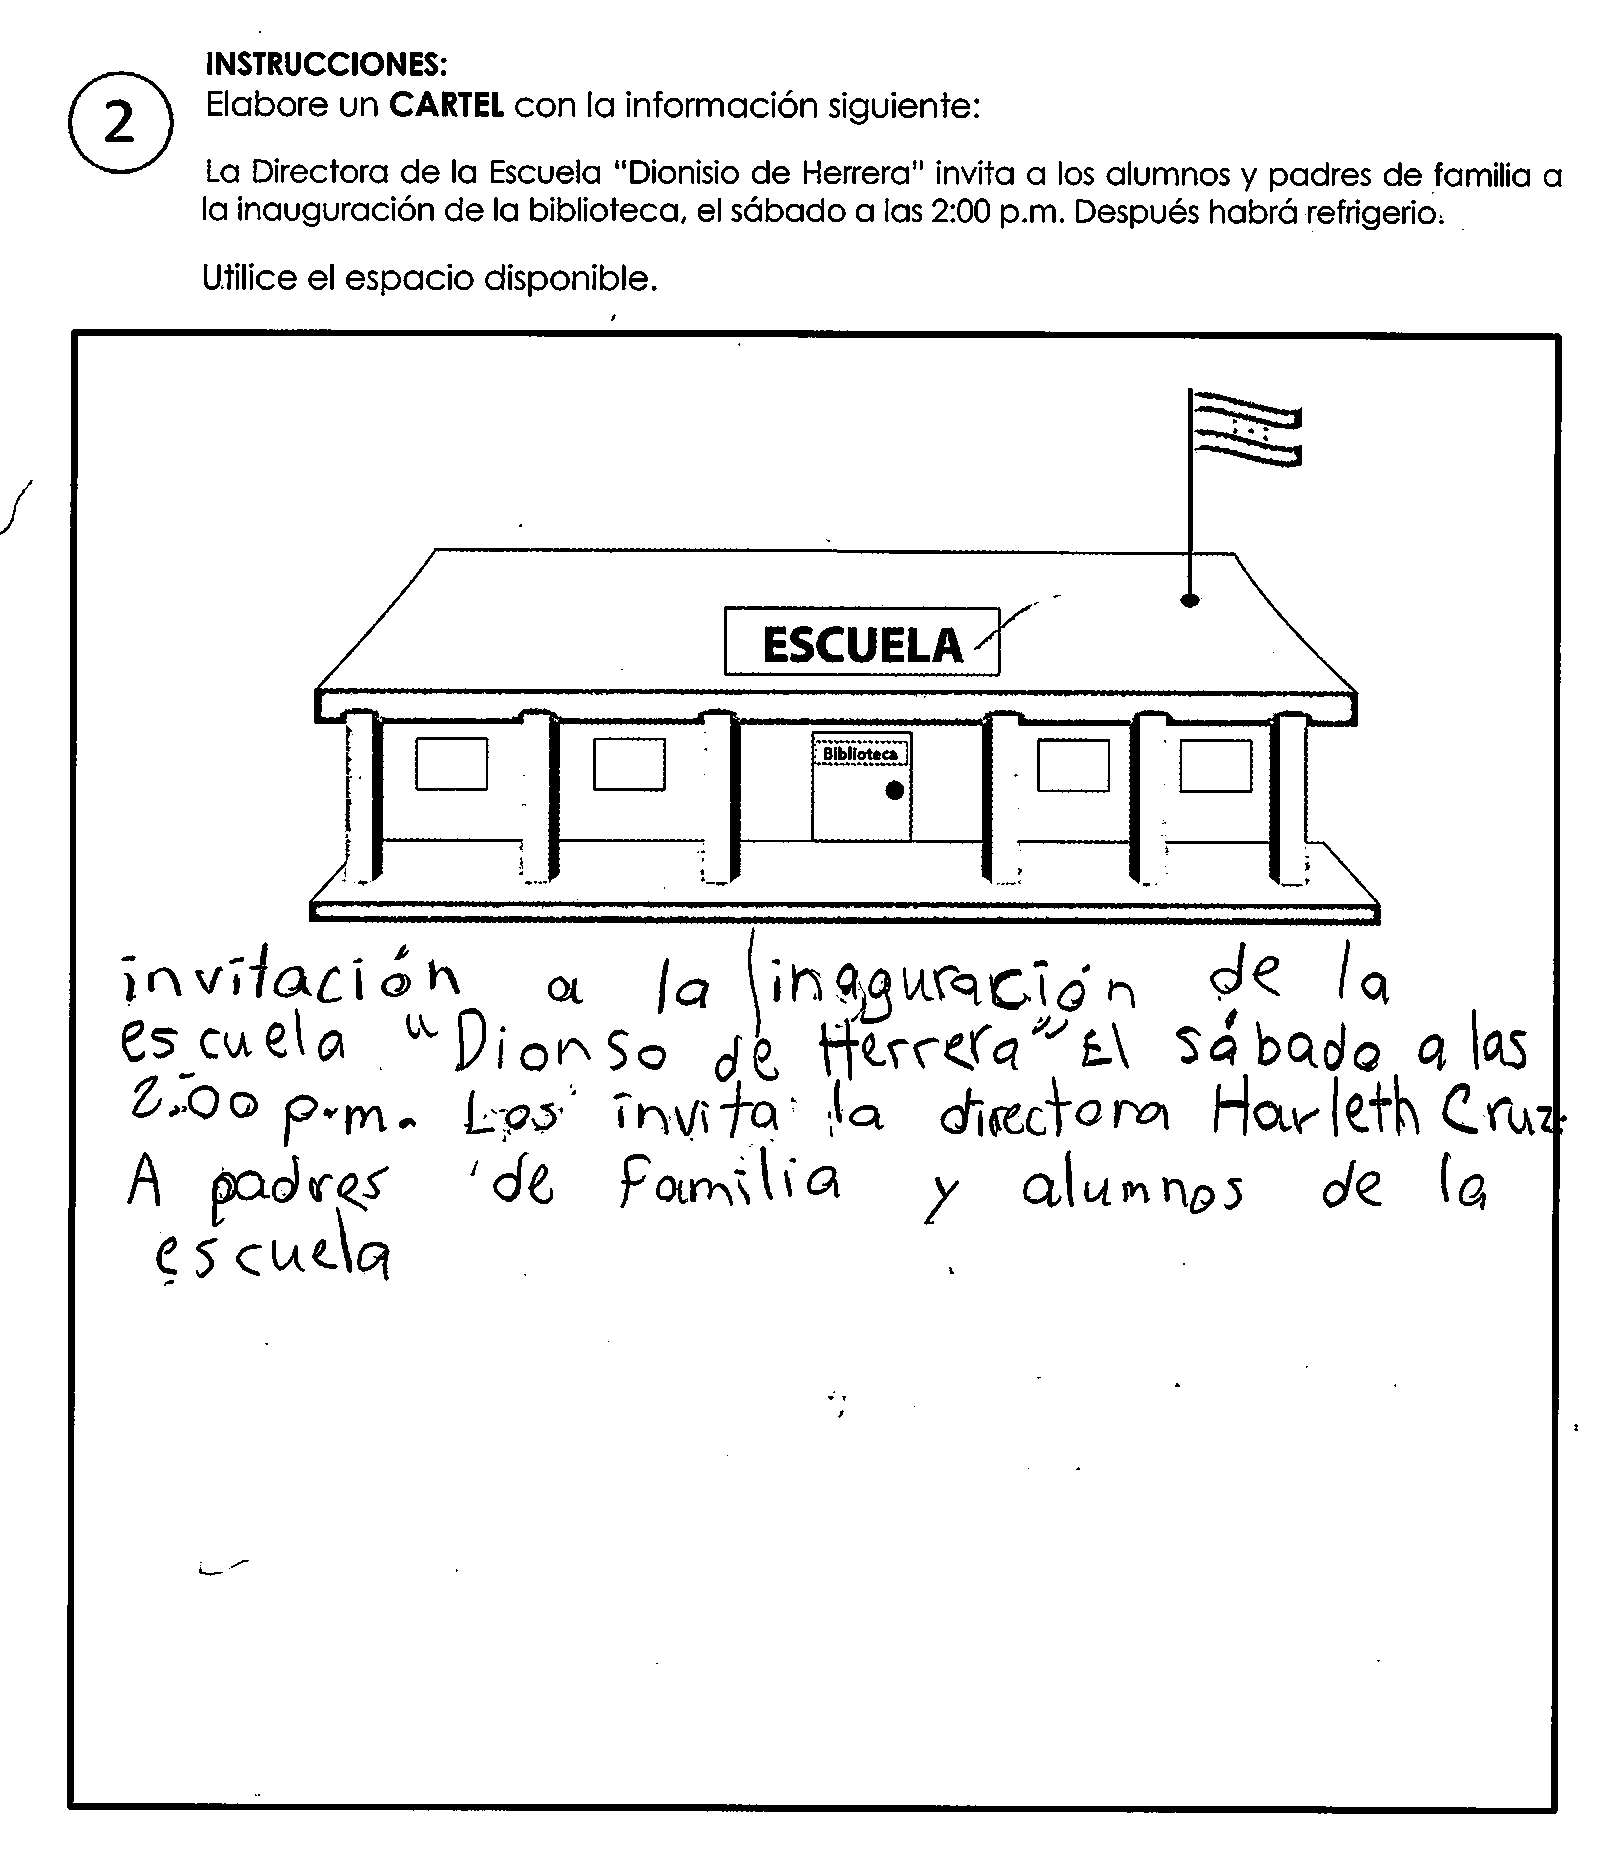 INSTRUCCIONES:
2
Elabore un CARTEL con la información siguiente:
La Directora de la Escuela "Dionisio de Herrera" invita a los alumnos y padres de familia a
la inauguración de la biblioteca, el sábado a las 2:00 p.m. Después habrá refrigerio.
Utilice el espacio disponible.
ESCUELA
Biblioteca
invitación a la inaguración de la
escuela "Dionso de Herrera" El sábado a las
2:00 p.m. Los invita la directora Harleth Cruz.
A padres de familia y alumnos de la
escuela